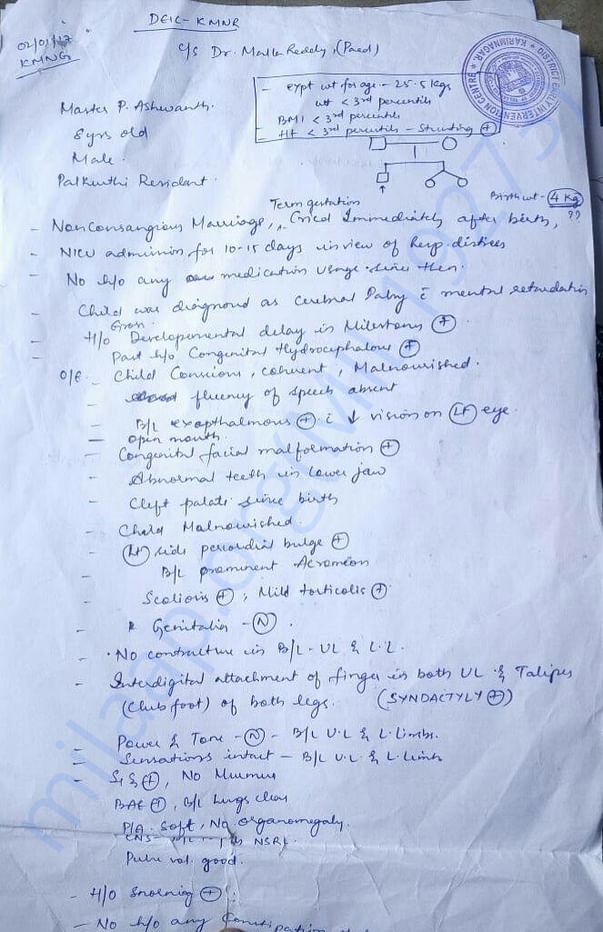 DEIC-KMNR
02/01/17
KMNG
C/S Dr. Malla Reddy, (Paed)
DISTRICT EARLY INTERVENTION CENTRE * KARIMNAGAR *
- expt wt for age - 25.5 kgs
wt < 3rd percentile
- BMI < 3rd percentile
- Ht < 3rd percentile - Stunting (+)
Master P. Ashwanth.
8 yrs old
Male.
Palkurthi Resident.
Birth wt - 4 Kg
??
Term gestation
- Nonconsangious Marriage, Cried Immediately after birth,
- NICU admission for 10-15 days in view of Resp. distress
- No h/o any medication usage since then.
- Child was diagnosed as Cerebral Palsy c̄ mental retardation
Gross
- H/o Developmental delay in Milestones (+)
- Past h/o Congenital Hydrocephalous (+)
O/E - Child Conscious, coherent, Malnourished.
- fluency of speech absent
- B/L exopthalmous (+) c̄ ↓ vision on (Lt) eye.
- Open mouth.
- Congenital facial malformation (+)
- Abnormal teeth in lower jaw
- Cleft palate since birth
- Child Malnourished.
- (Lt) side bulge (+)
B/L prominent Acromion
- Scoliosis (+), Mild torticolis (+)
- Genitalia - (N).
- No contracture in B/L - UL & L.L.
- Interdigital attachment of finger in both UL & Talipes
(Club foot) of both legs. (SYNDACTYLY (+))
- Power & Tone - (N) - B/L U.L & L.Limbs.
- Sensations intact - B/L U.L & L.Limb
- S1S2 (+), No Murmur
BAE (+), B/L lungs clear
P/A Soft, No organomegaly.
CNS - NSRL.
Pulse vol. good.
- H/o Snorning (+)
- No h/o any Constipation
milaap.org